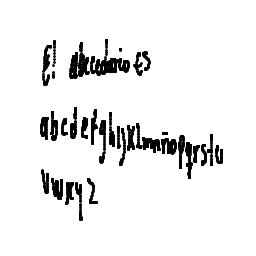 El abecedario es
abcdefghijklmnñopqrstu
vwxyz